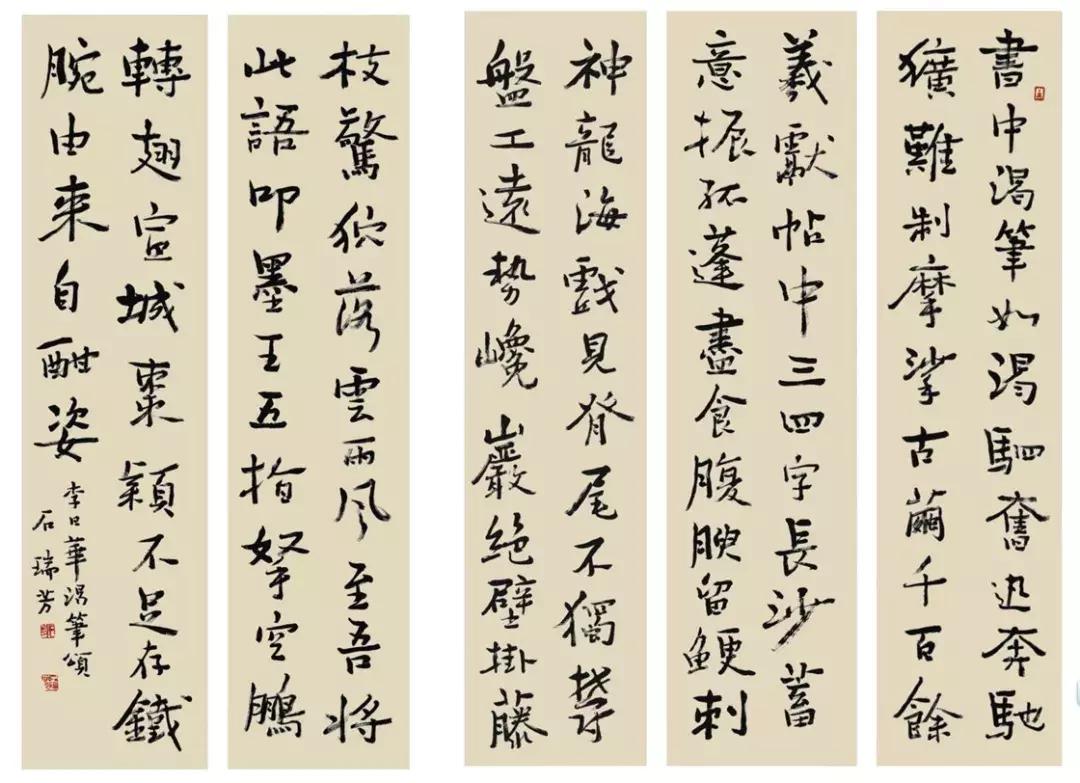 書中渴筆如渴駟奮迅奔馳
獷難制摩挲古繭千百餘
羲獻帖中三四字長沙蓄
意振孤蓬盡食腹腴留鯁刺
神龍海戲見脊尾不獨鬱
盤工遠勢巉巖絕壁掛藤
枝驚狖落雲雨風至吾將
此語叩墨王五指拏空鵬
轉翅宣城棗穎不足存鐵
腕由來自酣姿
李日華渴筆頌
石瑞芳